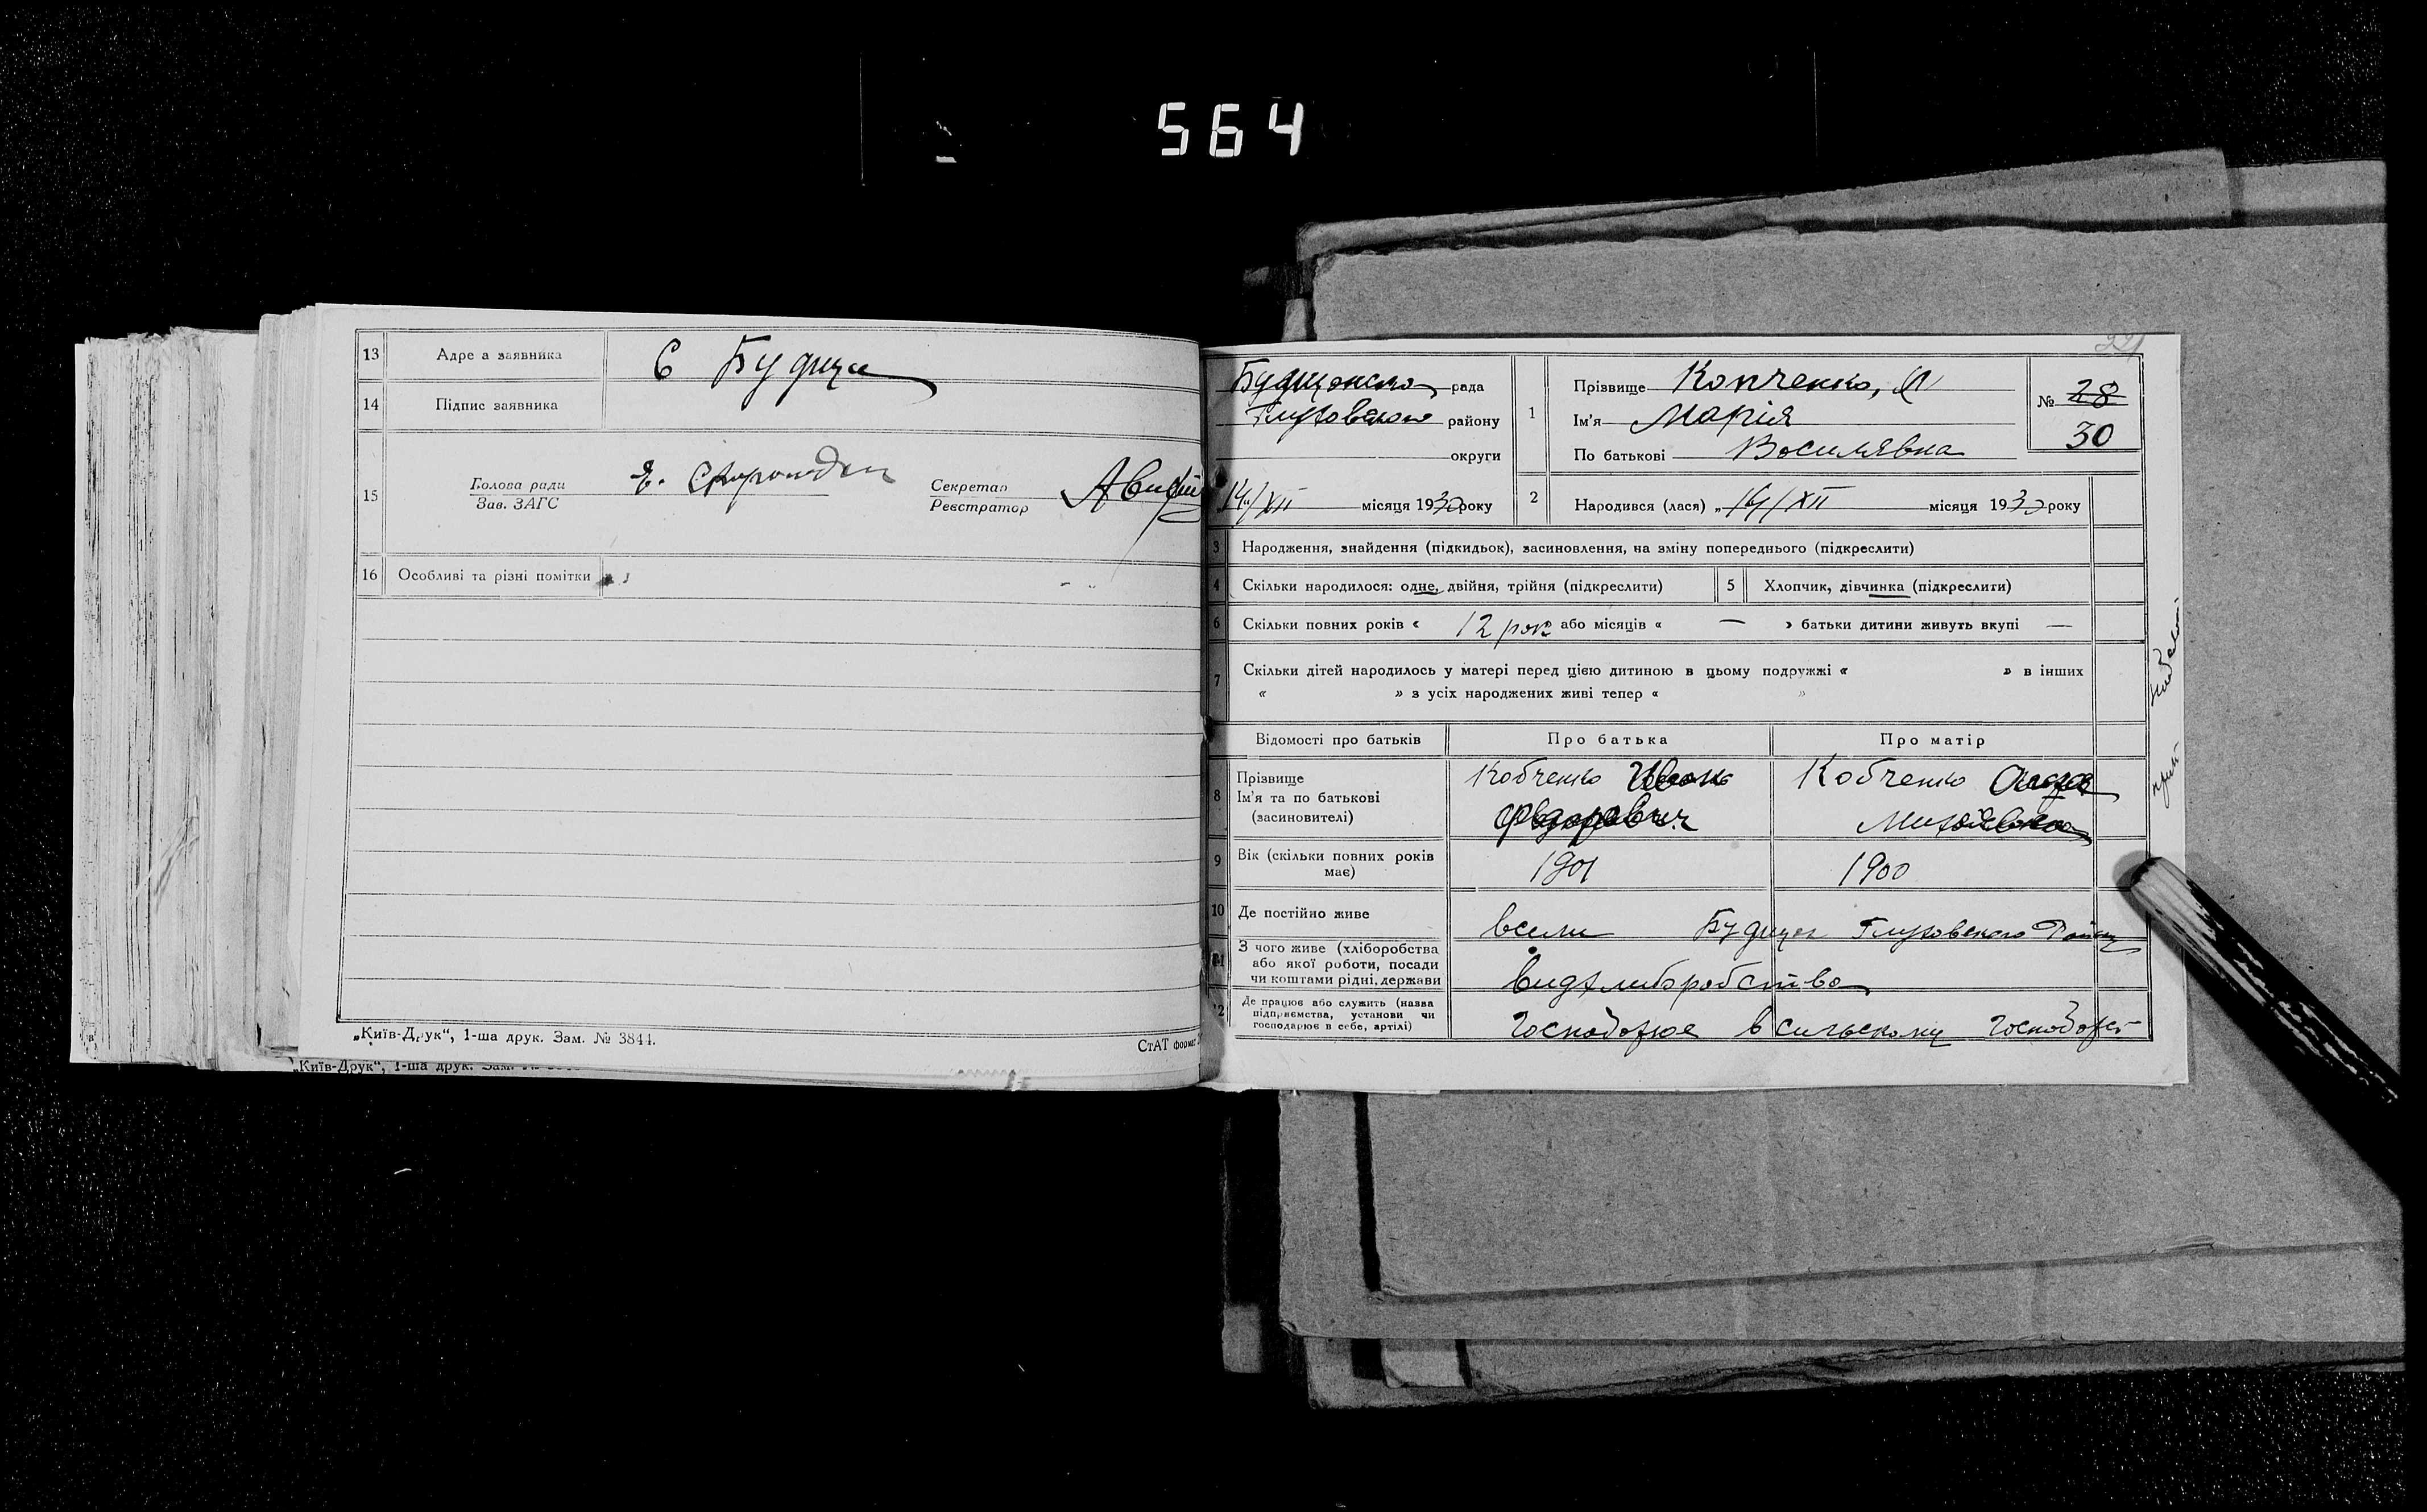 564
13 Адре а заявника С Будища
14 Підпис заявника
15 Голова ради
Зав. ЗАГС
Секретар
Реєстратор
16 Особливі та різні помітки
„Київ-Друк“, 1-ша друк. Зам. № 3844.
СтАТ формат
„Київ-Друк“, 1-ша друк. Зам. №
рада
Глуховском району
округи
14/XII місяця 1930 року
1 Прізвище Копченко,
Ім'я Марія
По батькові Восилявна
№ 28
30
2 Народився (лася) „ 14/XII місяця 1930 року
3 Народження, знайдення (підкидьок), засиновлення, на зміну попереднього (підкреслити)
4 Скільки народилося: одне, двійня, трійня (підкреслити) 5 Хлопчик, дівчинка (підкреслити)
6 Скільки повних років « 12 рок або місяців « — » батьки дитини живуть вкупі —
7 Скільки дітей народилось у матері перед цією дитиною в цьому подружжі « » в інших
« » з усіх народжених живі тепер « »
Відомості про батьків Про батька Про матір
8 Прізвище
Ім'я та по батькові
(засиновителі)
Кобченко Ивонь
Федорович
Кобченко
9 Вік (скільки повних років має) 1901 1900
10 Де постійно живе всели Будищех Глуховского
11 З чого живе (хліборобства
або якої роботи, посади
чи коштами рідні, держави
видхлиборобство
12 Де працює або служить (назва
підприємства, установи чи
господарює в себе, артілі)
господорюе в сильскому господорст